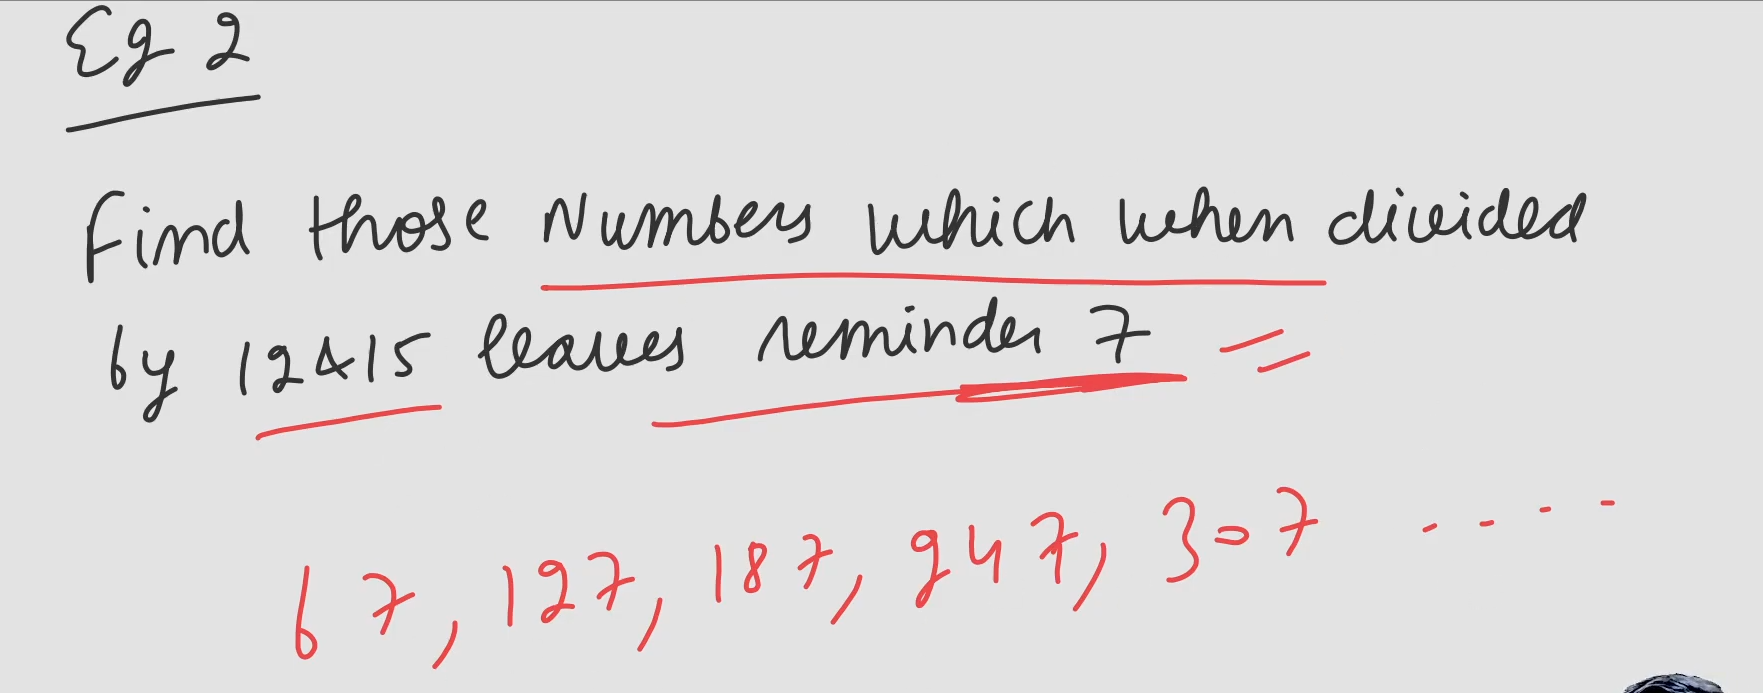 Eg 2
Find those Numbers which when divided
by 12&15 leaves reminder 7
67, 127, 187, 247, 307 ....